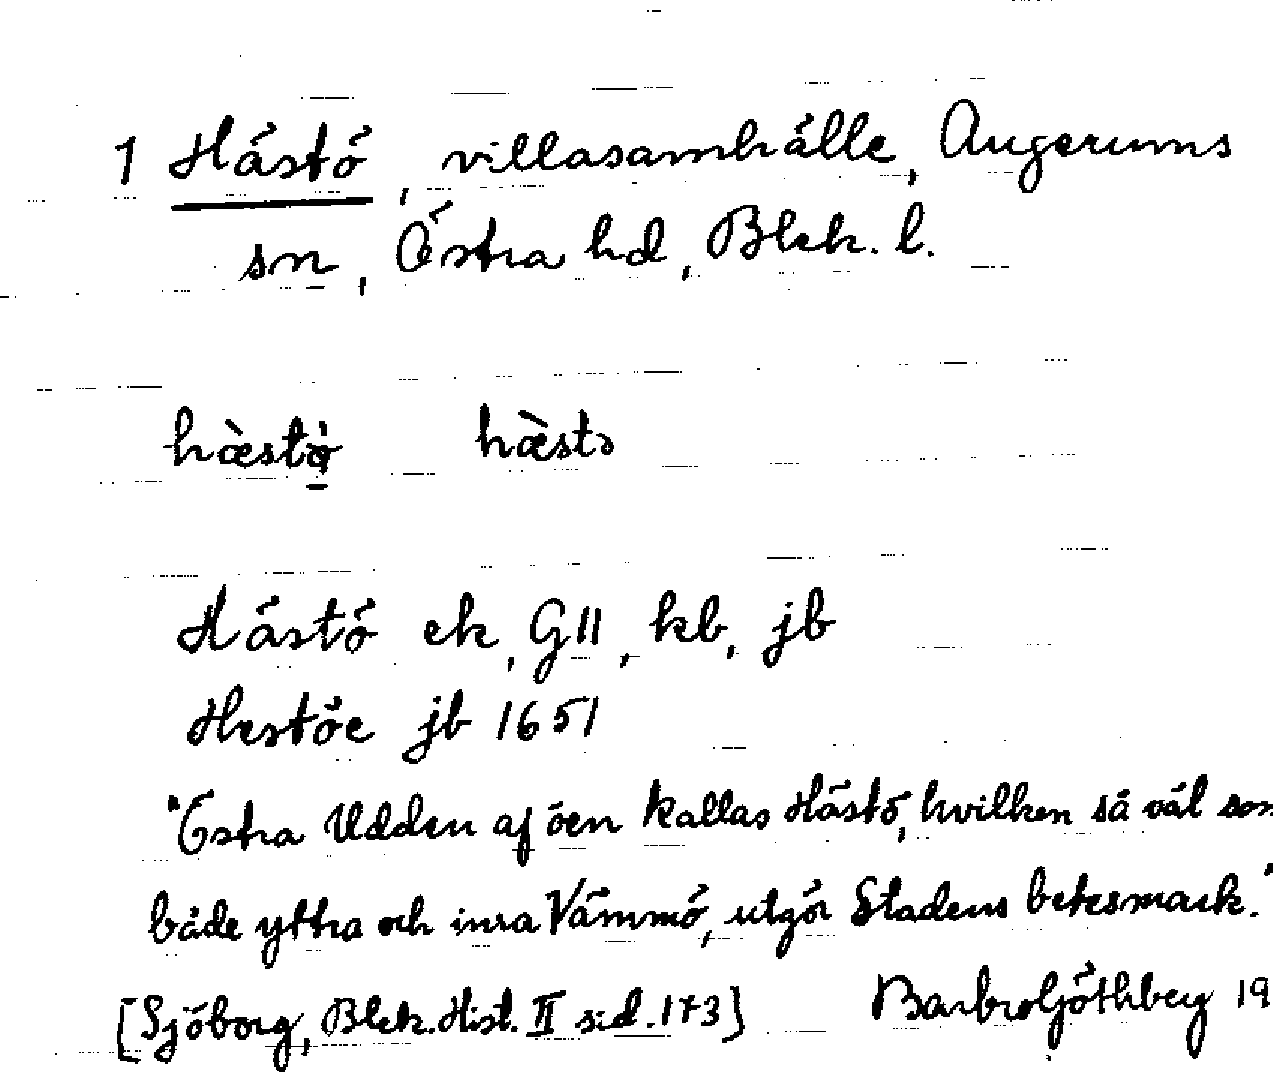 1 Hästö, villasamhälle, Augerums
sn, Östra hd, Blek. l.
hæ̀stö̀ hæ̀stə
Hästö ek, GII, kb, jb
Hestöe jb 1651
"Östra Udden af öen kallas Hästö, hvilken så väl som
både yttra och inra Vämmö, utgör Stadens betesmark."
[Sjöborg, Blek. Hist. II sid. 173] Barbro Göthberg 19